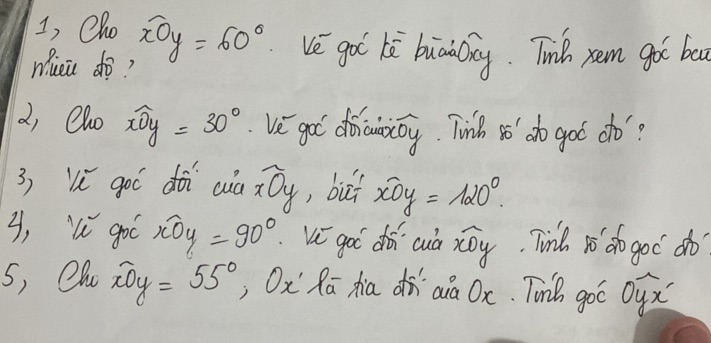 1, Cho xÔy = 60°. Vẽ góc kề bù của Oxy. Tính xem góc bao
nhiêu độ?
2, Cho xÔy = 30°. Vẽ góc đối của xÔy. Tính số đo góc đó?
3, Vẽ góc đối của xÔy, biết xÔy = 120°.
4, Vẽ góc xÔy = 90°. Vẽ góc đối của xÔy. Tính số đo góc đó
5, Cho xÔy = 55°, Ox' là tia đối của Ox. Tính góc Oyx'